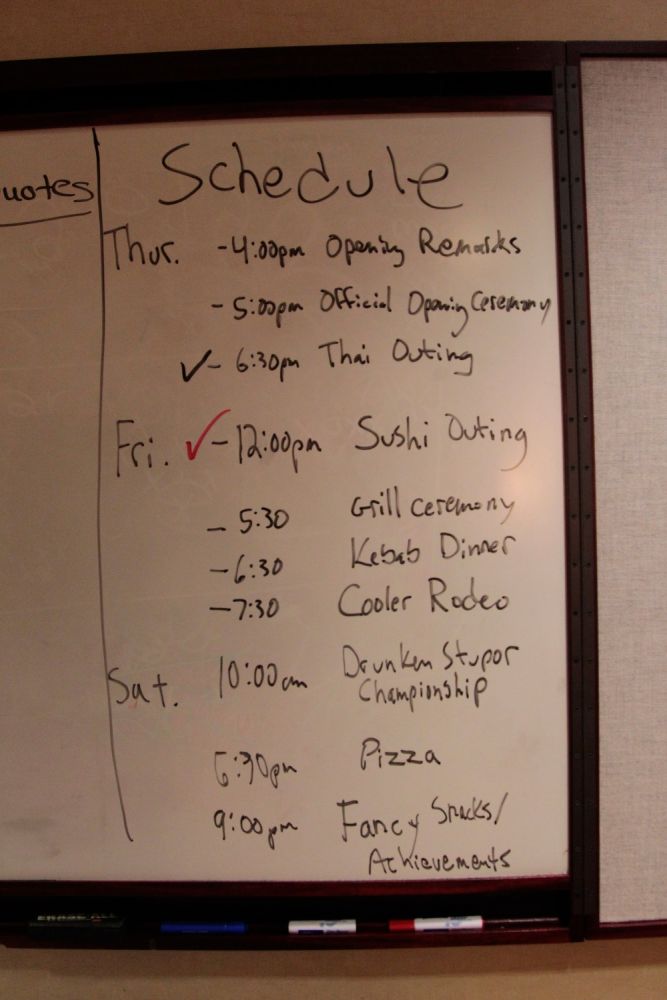 uotes
Schedule
Thur. - 4:00pm Opening Remarks
- 5:00pm Official Opening Ceremony
✓- 6:30pm Thai Outing
Fri. ✓- 12:00pm Sushi Outing
- 5:30 Grill Ceremony
- 6:30 Kebab Dinner
- 7:30 Cooler Rodeo
Sat. 10:00am Drunken Stupor
Championship
6:30pm Pizza
9:00pm Fancy Snacks/
Achievements